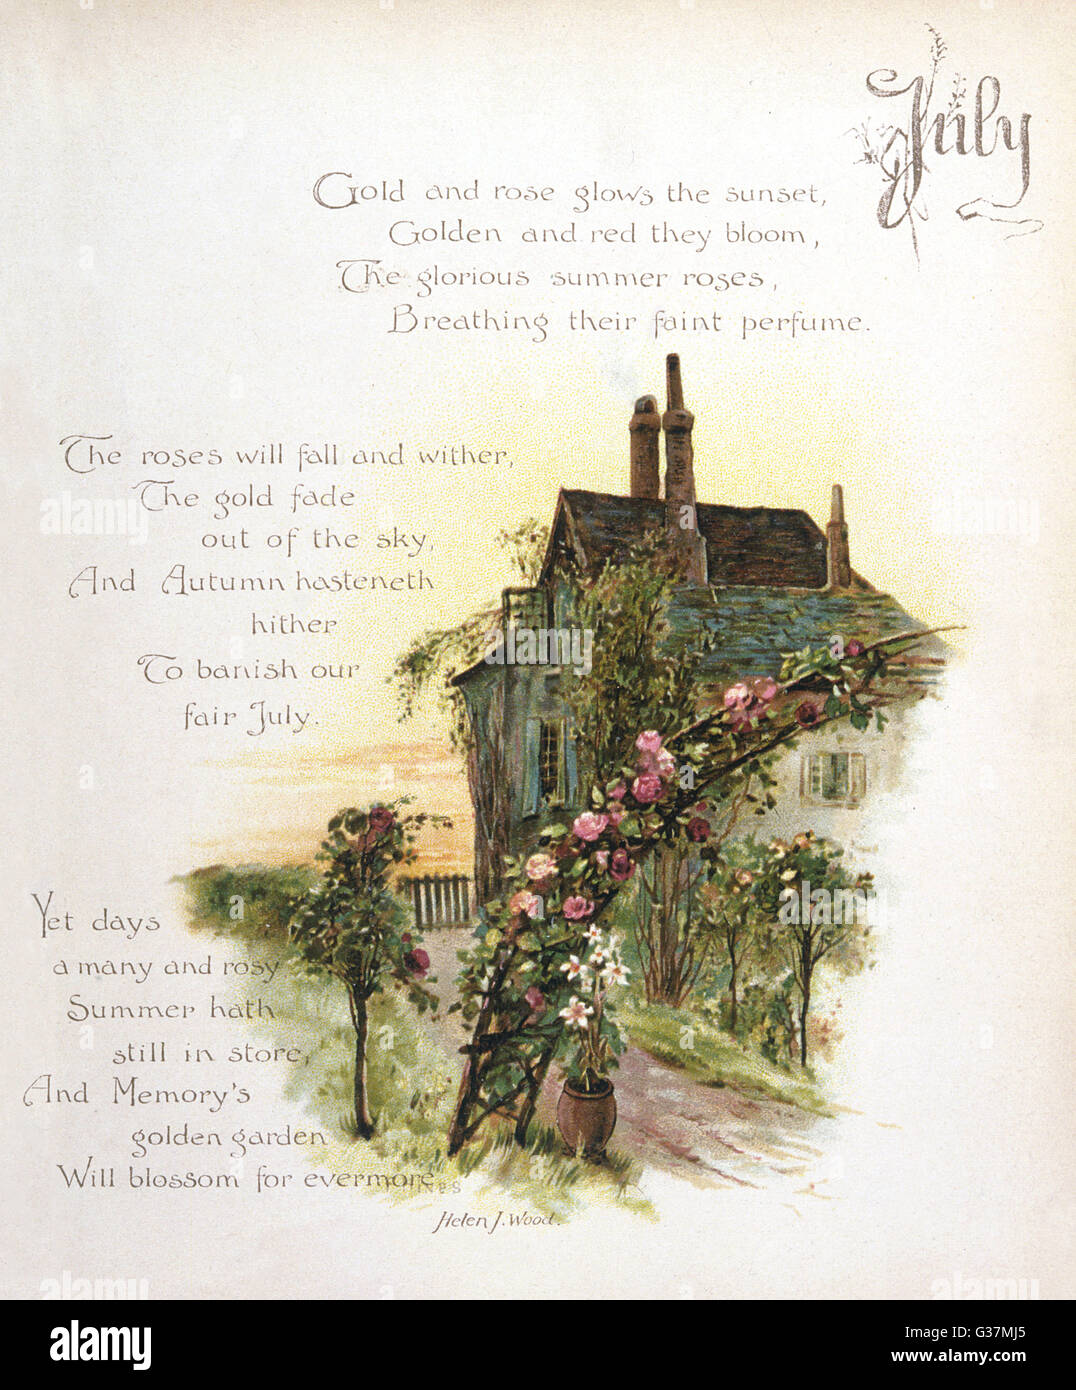 July
Gold and rose glows the sunset,
Golden and red they bloom,
The glorious summer roses,
Breathing their faint perfume.
The roses will fall and wither,
The gold fade
out of the sky,
And Autumn hasteneth
hither
To banish our
fair July.
Yet days
a many and rosy
Summer hath
still in store,
And Memory's
golden garden
Will blossom for evermore
Helen J. Wood.
alamy
alamy
Image ID: G37MJ5
www.alamy.com